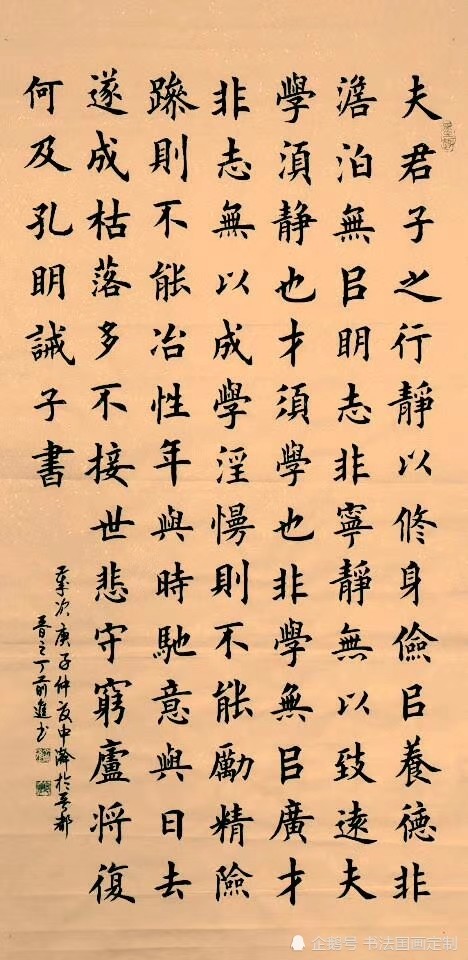 夫君子之行靜以修身儉㠯養德非
澹泊無㠯眀志非寧靜無以致遠夫
學湏静也才須學也非學無㠯廣才
非志無以成學淫慢則不能勵精險
躁則不能冶性年與時馳意與日去
遂成枯落多不接世悲守窮廬將復
何及孔眀誡子書
次庚子仲夏中瀚於都
晋之丁前進书
企鹅号 书法国画定制